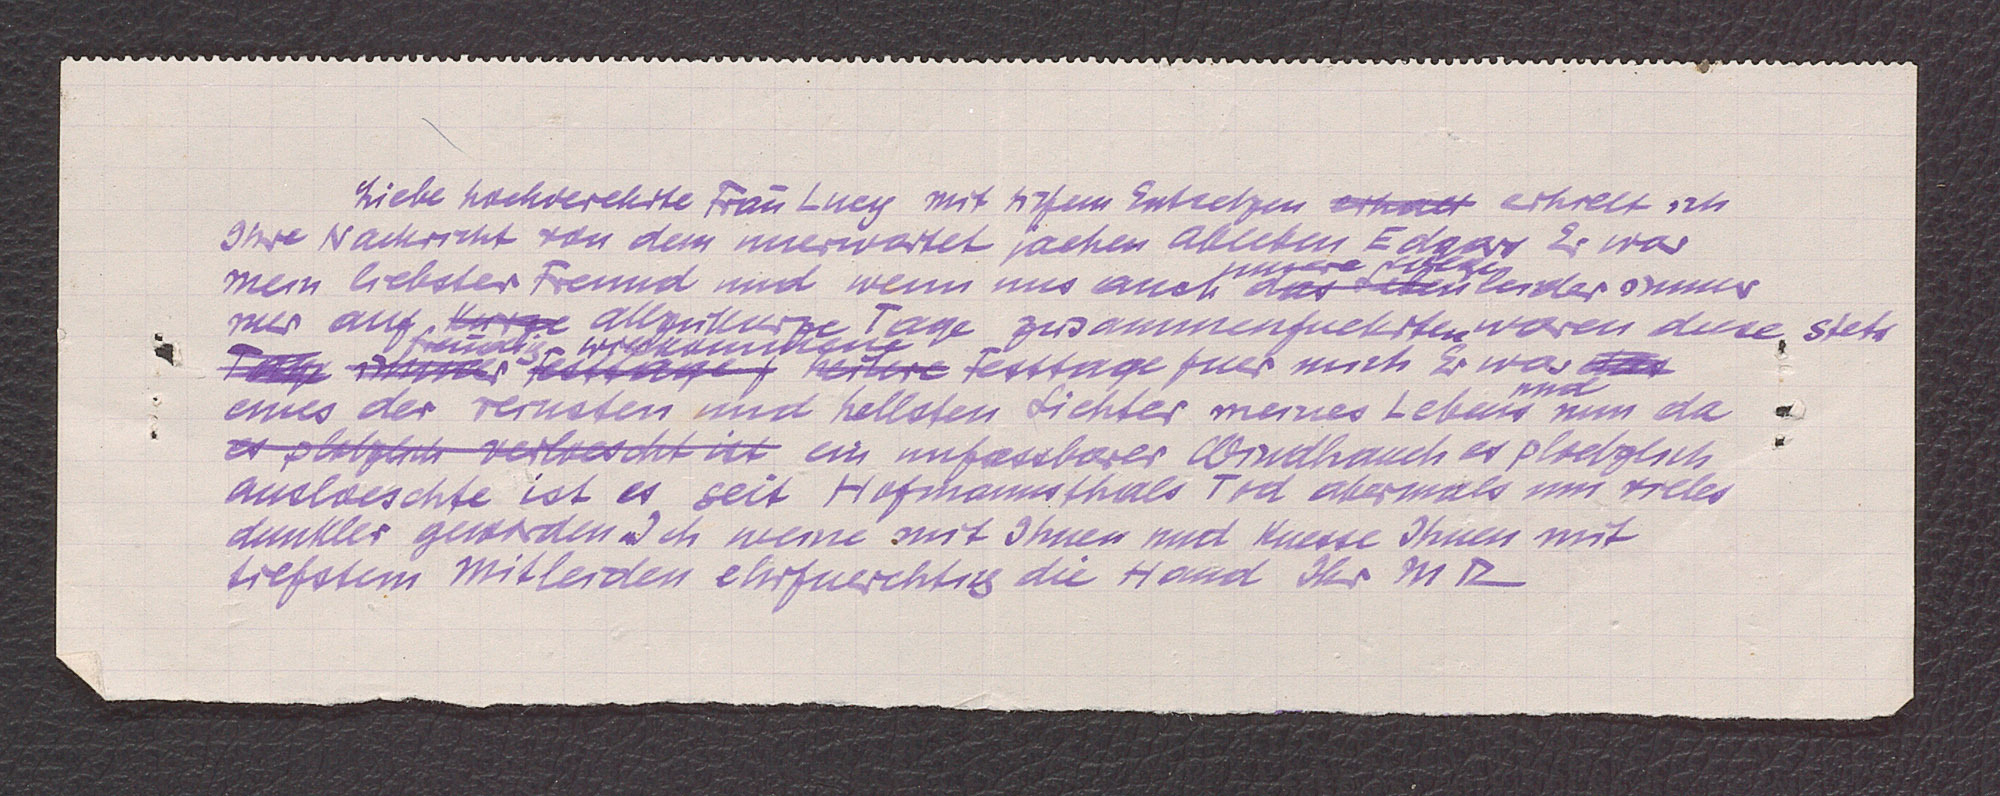 Liebe hochverehrte Frau Lucy mit tiefem Entsetzen erhielt erhielt ich
Ihre Nachricht von dem unerwartet jaehen Ableben Edgars Er war
unsere Wege
mein liebster Freund und wenn uns auch das Leben leider immer
nur auf kurze allzukurze Tage zusammenfuehrten waren diese stets
freudig willkommene
Tage immer Festtage heitere Festtage fuer mich Er war das
eines der reinsten und hellsten Lichter meines Lebens nun da
und
es plötzlich verloescht ist ein unfassbarer Windhauch es ploetzlich
ausloeschte ist es seit Hofmannsthals Tod abermals um vieles
dunkler geworden Ich weine mit Ihnen und kuesse Ihnen mit
tiefstem Mitleiden ehrfuerchtig die Hand Ihr MR